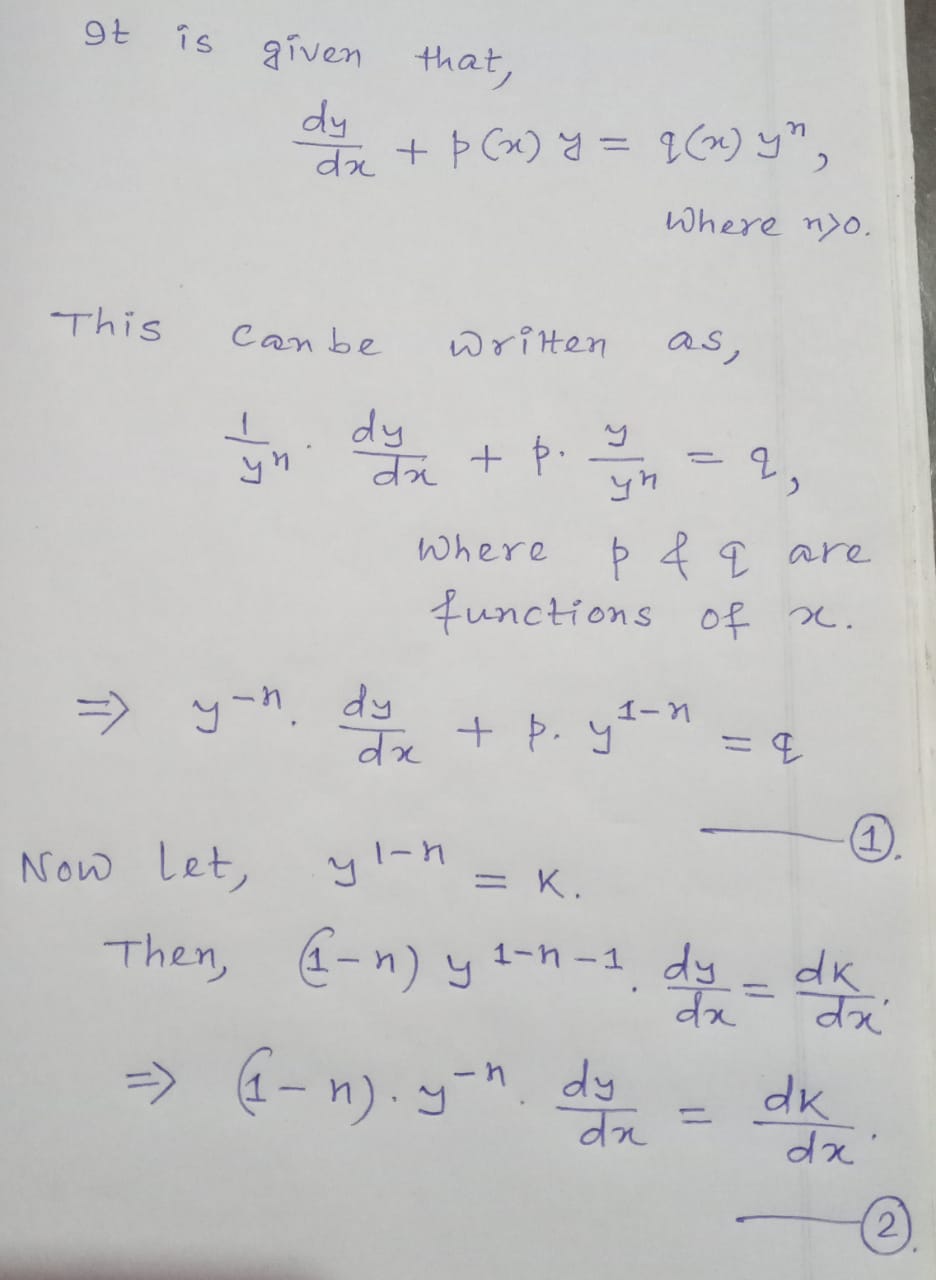 It is given that,
dy/dx + p(x) y = q(x) yⁿ,
where n>0.
This can be written as,
1/yⁿ . dy/dx + p. y/yⁿ = q,
where p & q are
functions of x.
=> y⁻ⁿ. dy/dx + p. y¹⁻ⁿ = q
①.
Now let, y¹⁻ⁿ = K.
Then, (1-n) y¹⁻ⁿ⁻¹. dy/dx = dK/dx.
=> (1-n). y⁻ⁿ. dy/dx = dK/dx.
②.